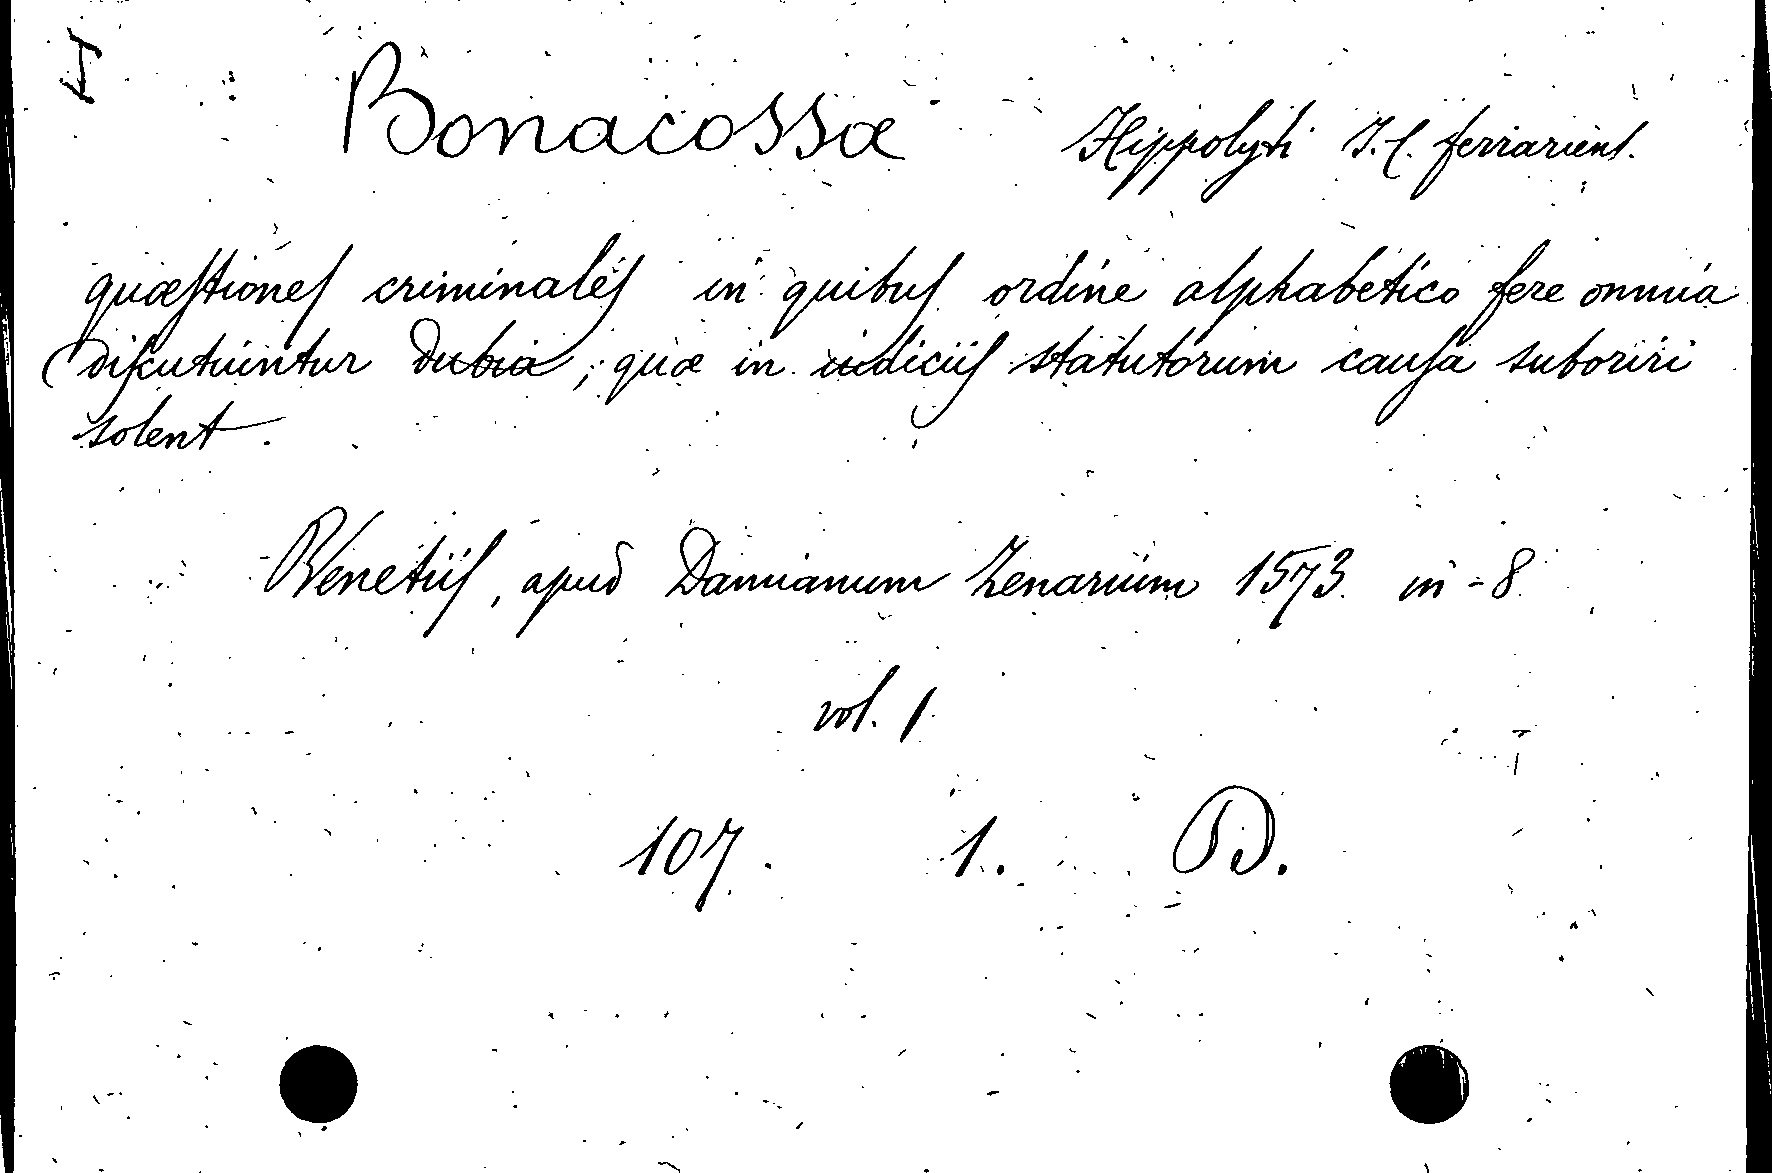 Bonacossæ Hippolyti J. C. ferrariens.
quæstiones criminales in quibus ordine alphabetico fere omnia
discutiuntur dubia, quæ in iudiciis statutorum causa suboriri
solent.
Venetiis, apud Damianum Zenarium 1573 in-8
vol. 1
107. 1. D.